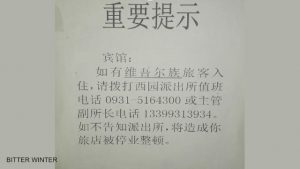 重要提示
宾馆：
如有维吾尔族旅客入
住，请拨打西园派出所值班
电话 0931-5164300 或主管
副所长电话 13399313934。
如不告知派出所，将造成你
旅店被停业整顿。
BITTER WINTER